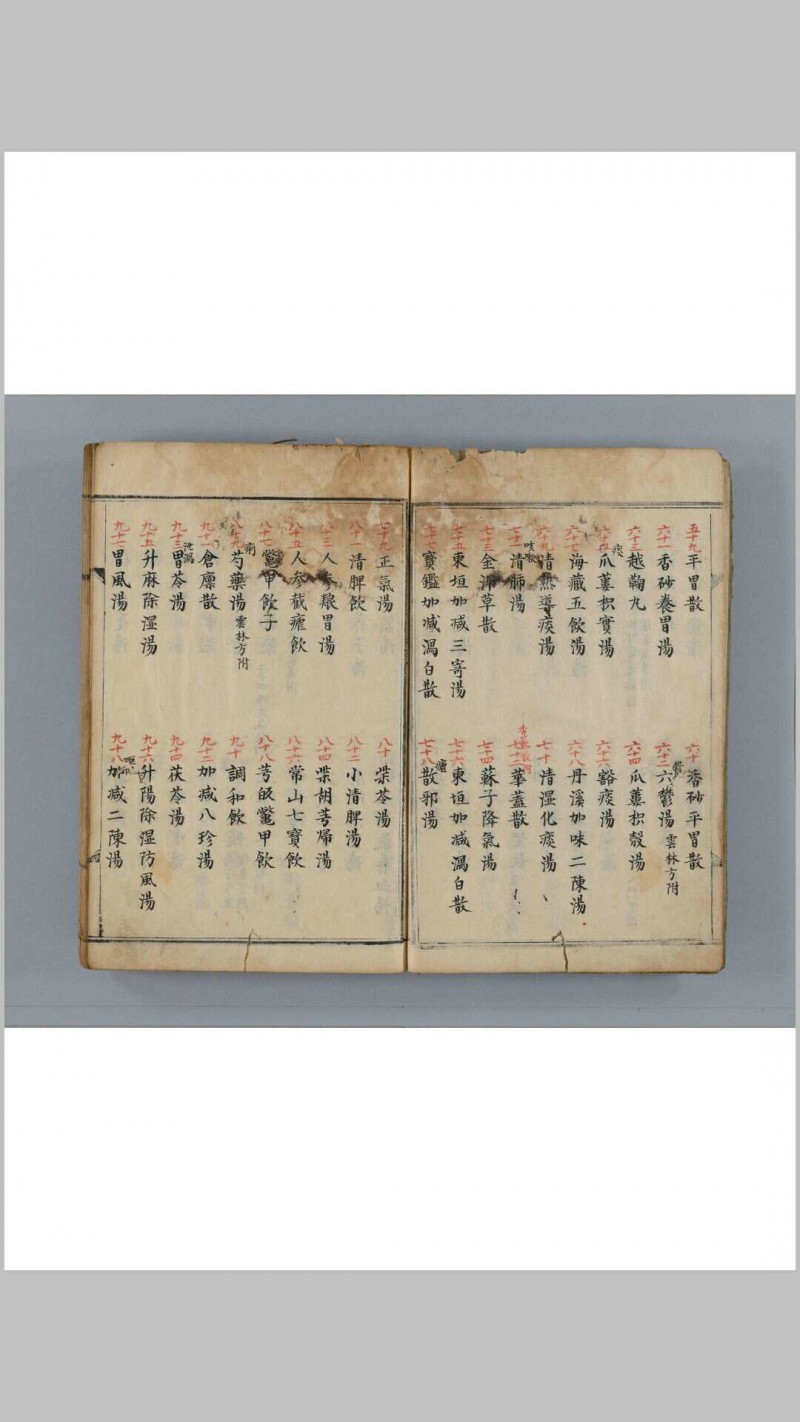 五十九 平胃散
六十 香砂平胃散
六十一 香砂養胃湯
鬱
六十二 六鬱湯 雲林方附
六十三 越鞠丸
六十四 瓜蔞枳殼湯
痰
六十五 瓜蔞枳實湯
六十六 豁痰湯
六十七 海藏五飲湯
六十八 丹溪加味二陳湯
六十九 清熱導痰湯
七十 清湿化痰湯
咳嗽
七十一 清肺湯
七十二 華蓋散
七十三 金沸草散
七十四 蘇子降氣湯
七十五 東垣加减三奇湯
七十六 東垣加减瀉白散
七十七 寳鑑加减瀉白散
瘧
七十八 散邪湯
七十九 正氣湯
八十 柴苓湯
八十一 清脾飲
八十二 小清脾湯
八十三 人參養胃湯
八十四 柴胡芎歸湯
八十五 人參截瘧飲
八十六 常山七寳飲
八十七 鱉甲飲子
八十八 芎皈鱉甲飲
痢
八十九 芍藥湯 雲林方附
九十 調和飲
九十一 倉廩散
九十二 加减八珍湯
泄瀉
九十三 胃苓湯
九十四 茯苓湯
九十五 升麻除湿湯
九十六 升陽除湿防風湯
九十七 胃風湯
嘔吐
九十八 加减二陳湯